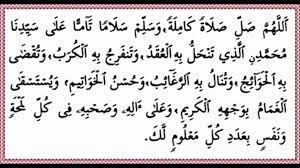 اَللّٰهُمَّ صَلِّ صَلَاةً كَامِلَةً، وَسَلِّمْ سَلَامًا تَآمًّا عَلَى سَيِّدِنَا
مُحَمَّدِنِ الَّذِي تَنْحَلُّ بِهِ الْعُقَدُ، وَتَنْفَرِجُ بِهِ الْكُرَبُ، وَتُقْضَى
بِهِ الْحَوَائِجُ، وَتُنَالُ بِهِ الرَّغَائِبُ، وَحُسْنُ الْخَوَاتِيمِ، وَيُسْتَسْقَى
الْغَمَامُ بِوَجْهِهِ الْكَرِيمِ، وَعَلَى ءَالِهِ وَصَحْبِهِ فِي كُلِّ لَمْحَةٍ
وَنَفَسٍ بِعَدَدِ كُلِّ مَعْلُومٍ لَكَ.